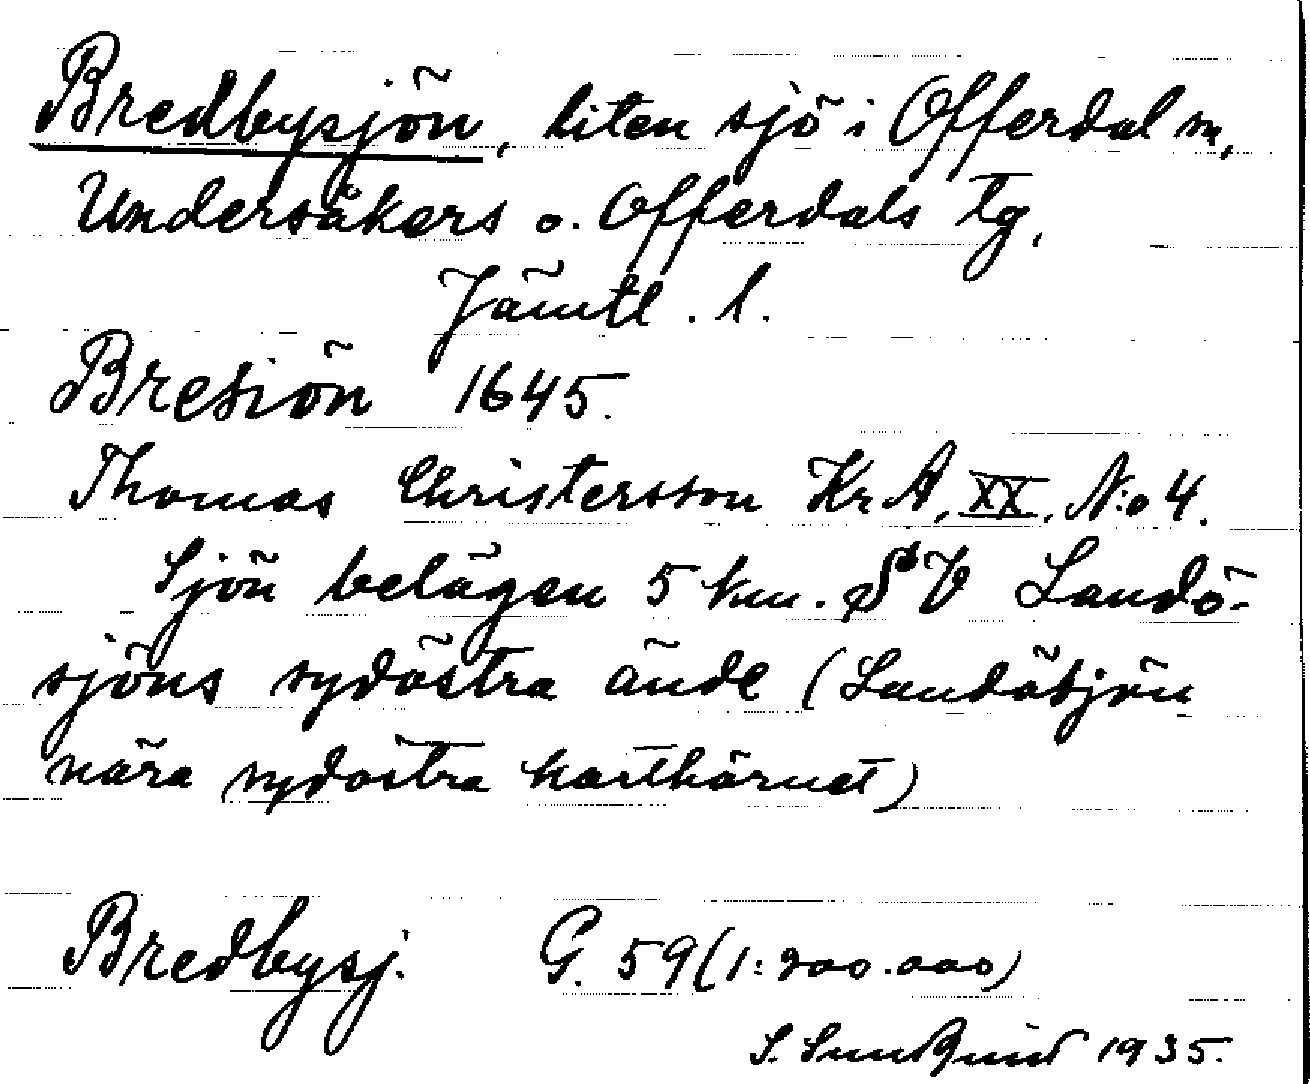 Bredbysjön, liten sjö i Offerdal sn,
Undersåkers o. Offerdals tg,
Jämtl. l.
Bresiön 1645.
Thomas Christersson Kr A, XX, N:o 4.
Sjön belägen 5 km. SV Landö-
sjöns sydöstra ände (Landösjön
nära sydöstra karthörnet)
Bredbysj. G. 59 (1:200.000)
S. Sundquist 1935.